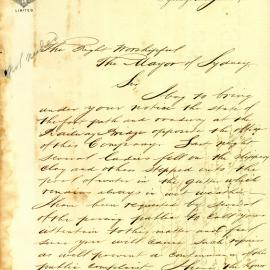 LIMITED
The Right Worshipful
The Mayor of Sydney
Sir,
I beg to bring
under your notice the state of
the foot path and roadway at the
Railway Bridge opposite the Office
of this Company. Last night
several ladies fell on the slippery
clay and others stepped into the
pool of water in the gutter which
remains always in wet weather
I have been requested by several
of the passing public to call your
attention to this matter and feel
sure you will cause such repairs
as will prevent a continuance of the
public complaint